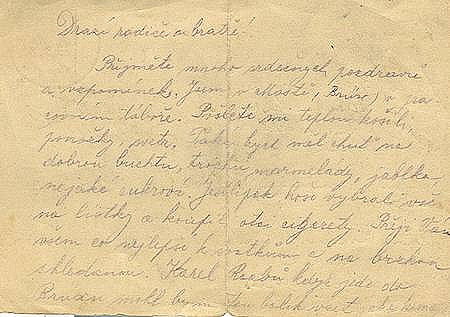 Drazí rodiče a bratře!
Přijměte mnoho srdečných pozdravů
a vzpomínek. Jsem v Mostě, Brüx) v pra
covním táboře. Pošlete mi teplou košili,
ponožky, svetr. Také bych měl chuť na
dobrou buchtu, trochu marmelády, jablka
nějaké cukroví. Jestli pak hoši vybrali vše
na lístky a koupil otci cigarety. Přeji Vám
všem co nejlepše k svátkům a na brzkou
shledanou. Karel když jede do
by mi ten balík vzít,